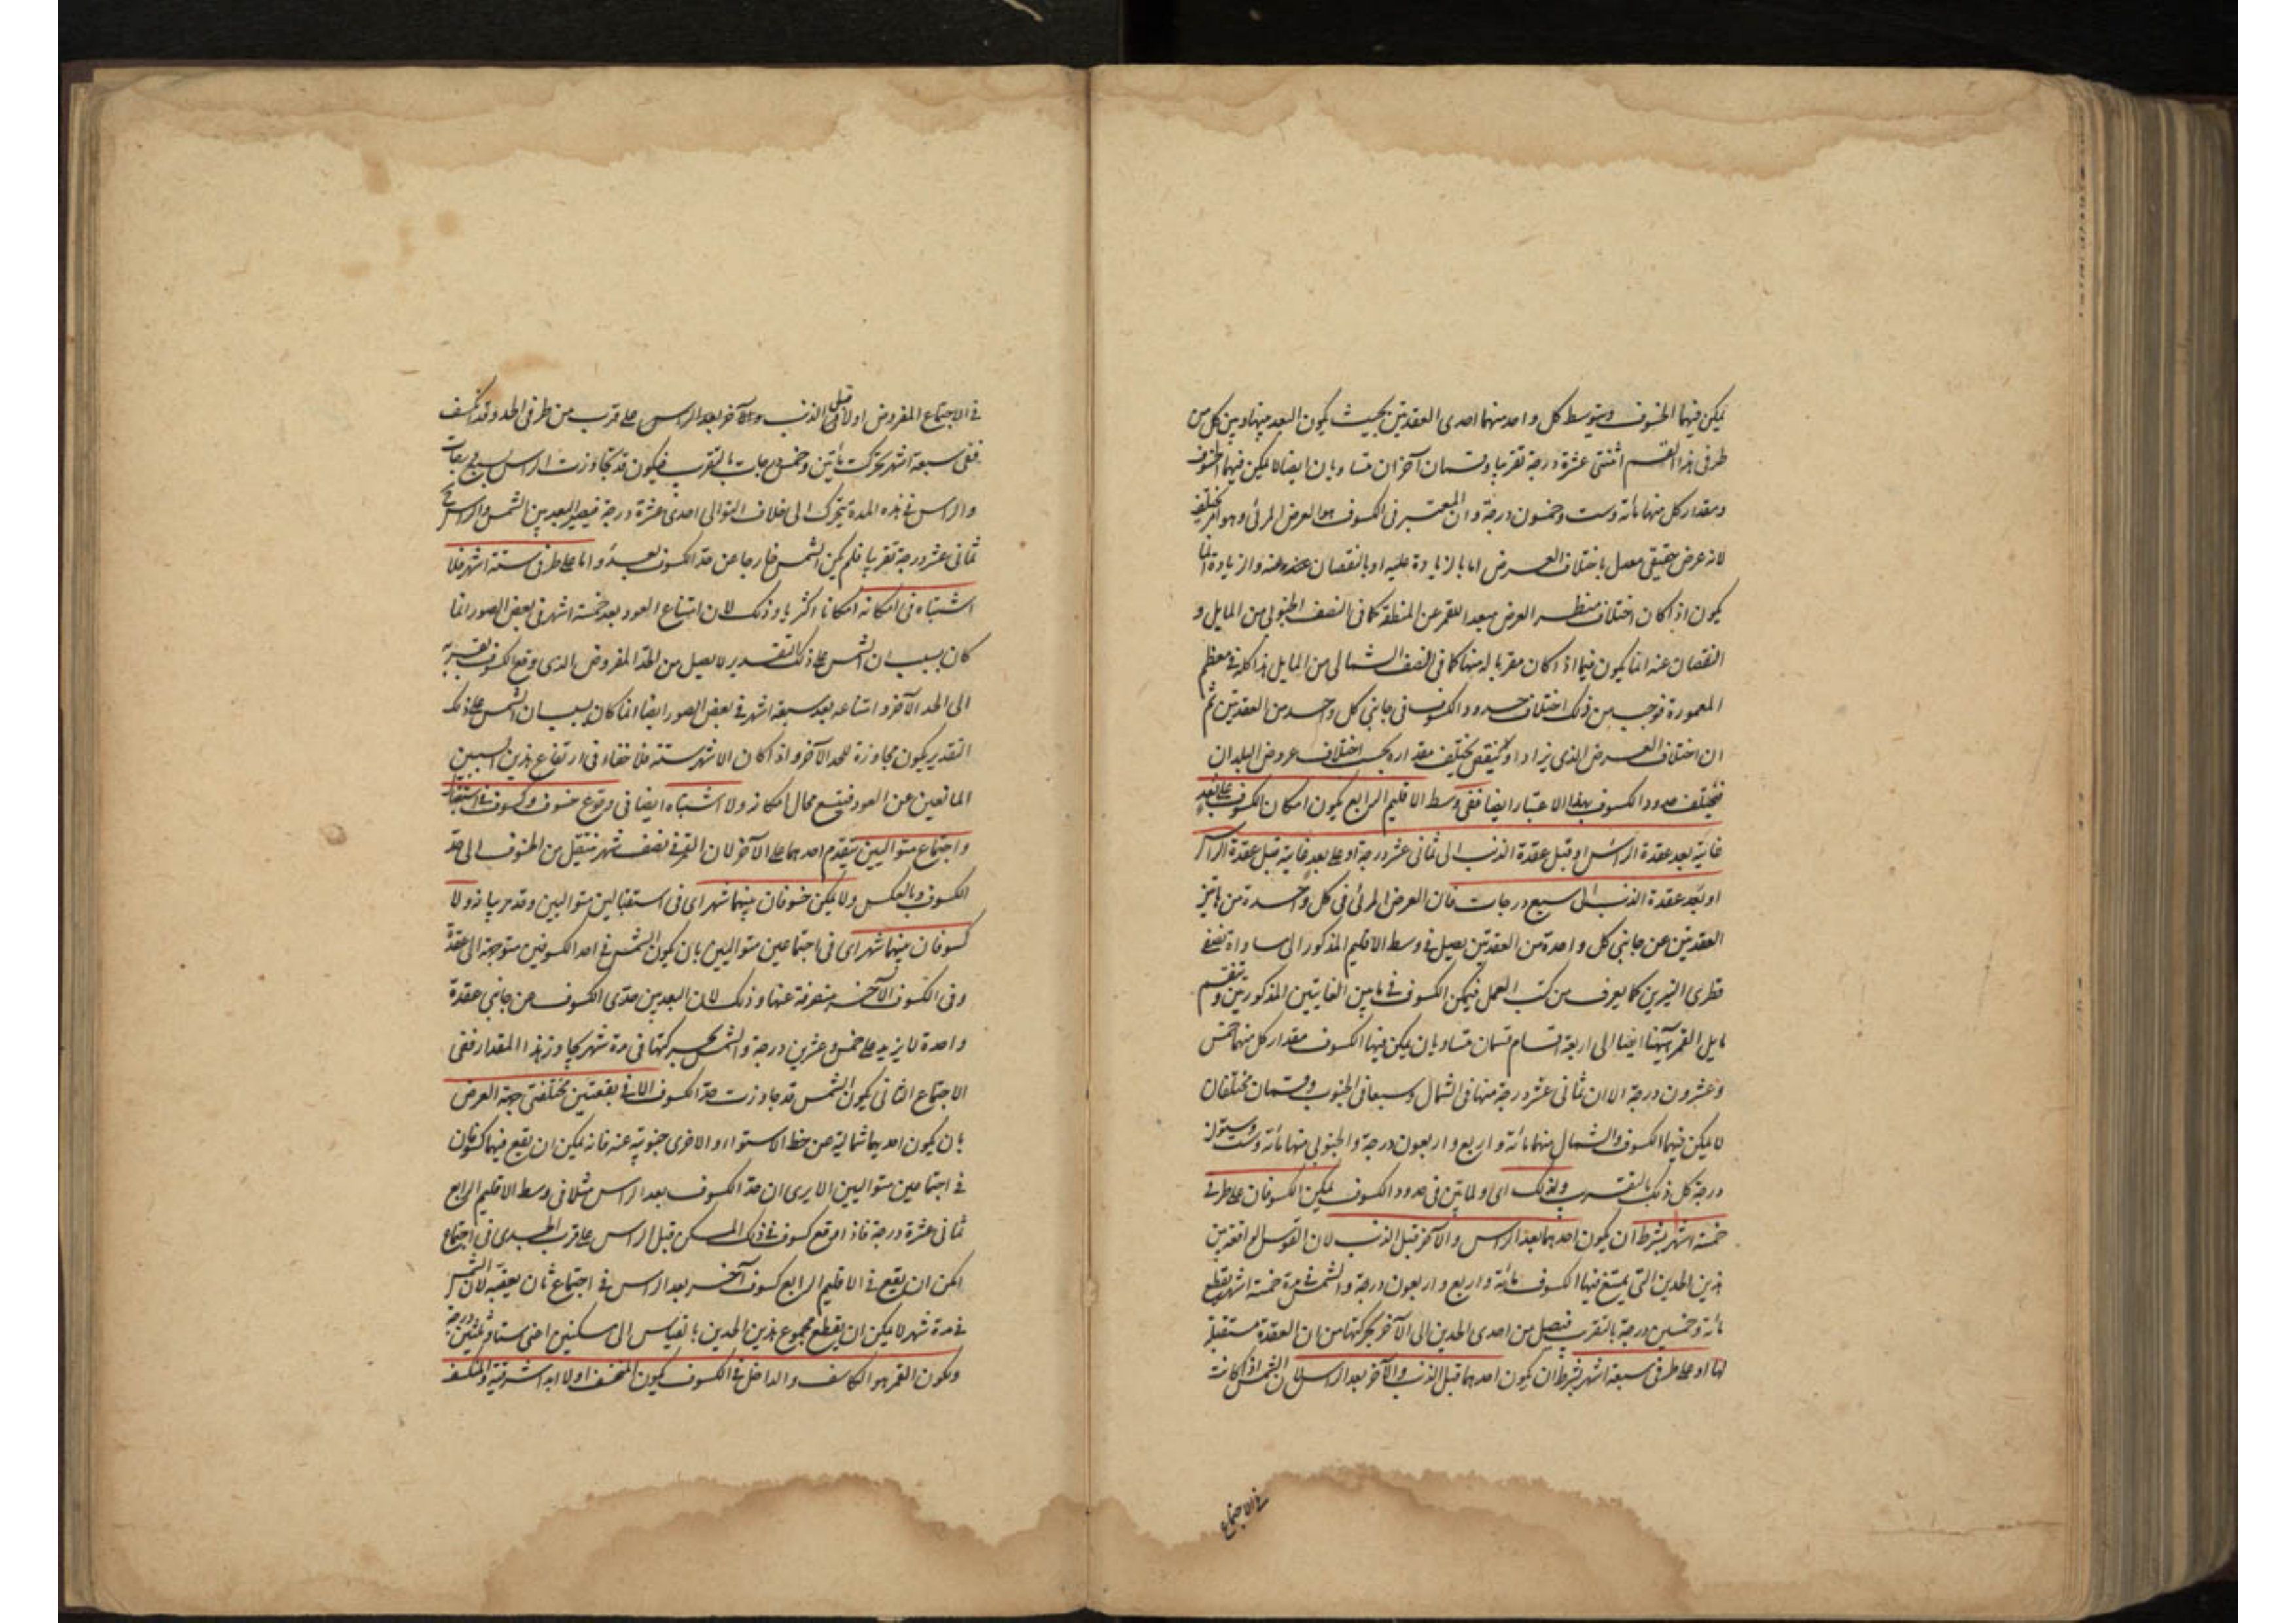 يمكن فيهما الخسوف ويتوسط كل واحد منهما احدى العقدتين بحيث يكون البعد بينها وبين كل من
طرفى هذا القسم اثنتى عشرة درجة تقريبا وقسمان آخران متساويان ايضا لا يمكن فيهما الخسوف
ومقدار كل منهما مائة وست وخمسون درجة وان المعتبر فى الكسوف هو العرض المرئى وهو امر مختلف
لانه عرض حقيقى معدل باختلاف العرض اما بالزيادة عليه او بالنقصان عنه والزيادة انما
يكون اذا كان اختلاف منظر العرض مبعدا للقمر عن المنطقة كما فى النصف الجنوبى من المايل و
النقصان عنه انما يكون فيما اذا كان مقربا له منها كما فى النصف الشمالى من المايل هذا كله فى معظم
المعمورة فوجب من ذلك اختلاف حدود الكسوف فى جانبى كل واحد من العقدتين ثم
ان اختلاف العرض الذى يزاد او ينقص يختلف مقداره بحسب اختلاف عروض البلدان
فيختلف حدود الكسوف بهذا الاعتبار ايضا ففى وسط الاقليم الرابع يكون امكان الكسوف على بعد
غايته بعد عقدة الراس او قبل عقدة الذنب الى ثمانى عشر درجة او على بعد غايته قبل عقدة الراس
او بعد عقدة الذنب الى سبع درجات فان العرض المرئى فى كل واحدة من هاتين
العقدتين عن جانبى كل واحدة من العقدتين يصل فى وسط الاقليم المذكور الى مساواة نصفى
قطرى النيرين كما يعرف من كتب العمل فيمكن الكسوف فى ما بين الغايتين المذكورتين وينقسم
مايل القمر ههنا ايضا الى اربعة اقسام قسمان متساويان يمكن فيهما الكسوف مقدار كل منهما خمس
وعشرون درجة الا ان ثمانى عشر درجة منها فى الشمال وسبعا فى الجنوب وقسمان مختلفان
لا يمكن فيهما الكسوف والشمالى منهما مائة واربع واربعون درجة والجنوبى منهما مائة وست وستون
درجة كل ذلك بالتقريب ولذلك اى ولما تبين فى حدود الكسوف يمكن الكسوفان على طرفى
خمسة اشهر بشرط ان يكون احدهما بعد الراس والآخر قبل الذنب لان القوس الواقعة بين
هذين الحدين التى يمتنع فيها الكسوف مائة واربع واربعون درجة والشمس فى مدة خمسة اشهر يقطع
مائة وخمسين درجة بالتقريب فيصل من احدى الحدين الى الآخر بحركتها من ان العقدة مستقبلة
لها او على طرفى سبعة اشهر بشرط ان يكون احدهما قبل الذنب والآخر بعد الراس لان الشمس اذا كانت
فى الاجتماع
فى الاجتماع المفروض اولا قبل الذنب والآخر بعد الراس على قرب من طرفى الحد وقد انكسف
ففى سبعة اشهر تحركت مائتين وخمس درجات بالتقريب فيكون قد تجاوزت الراس بسبع درجات
والراس فى هذه المدة يتحرك الى خلاف التوالى احدى عشرة درجة فيصير البعد بين الشمس والراس ح
ثمانى عشر درجة تقريبا فلم يكن الشمس خارجا عن حد الكسوف بعد واما على طرفى ستة اشهر فلا
اشتباه فى امكانه امكانا اكثريا وذلك لان امتناع العود بعد خمسة اشهر فى بعض الصور انما
كان بسبب ان الشمس على ذلك التقدير لا يصل من الحد المفروض الذى وقع الكسوف بقربه
الى الحد الآخر وامتناعه بعد سبعة اشهر فى بعض الصور ايضا انما كان بسبب ان الشمس على ذلك
التقدير يكون مجاوزة للحد الآخر واذا كان الاشهر ستة فلا خفاء فى ارتفاع هذين السببين
المانعين عن العود فيتسع مجال امكانه ولا اشتباه ايضا فى وقوع خسوف وكسوف فى استقبال
واجتماع متواليين يتقدم احدهما على الآخر لان القمر فى نصف شهر ينتقل من الخسوف الى حد
الكسوف وبالعكس ولا يمكن خسوفان بينهما شهر اى فى استقبالين متواليين وقد مر بيانه ولا
كسوفان بينهما شهر اى فى اجتماعين متواليين بان يكون الشمس فى احد الكسوفين متوجهة الى عقدة
وفى الكسوف الآخر منصرفة عنها وذلك لان البعد بين حدى الكسوف من جانبى عقدة
واحدة لا يزيد على خمس وعشرين درجة والشمس بحركتها فى مدة شهر يجاوز هذا المقدار ففى
الاجتماع الثانى يكون الشمس قد جاوزت حد الكسوف الا فى بقعتين مختلفتى جهة العرض
بان يكون احديهما شمالية عن خط الاستواء والاخرى جنوبية عنه فانه يمكن ان يقع فيهما كسوفان
فى اجتماعين متواليين الا يرى ان حد الكسوف بعد الراس مثلا فى وسط الاقليم الرابع
ثمانى عشرة درجة فاذا وقع كسوف فى ذلك المسكن قبل الراس على قرب الجدى فى اجتماع
امكن ان يقع فى الاقليم الرابع كسوف آخر بعد الراس فى اجتماع ثان يعقبه لان الشمس
فى مدة شهر لا يمكن ان يقطع مجموع هذين الحدين بالقياس الى مسكنين اعنى ستا وثلثين درجة
ويكون القمر هو الكاسف والداخل فى الكسوف يكون المنخسف اولا ابدا شرقيه والمنكسف